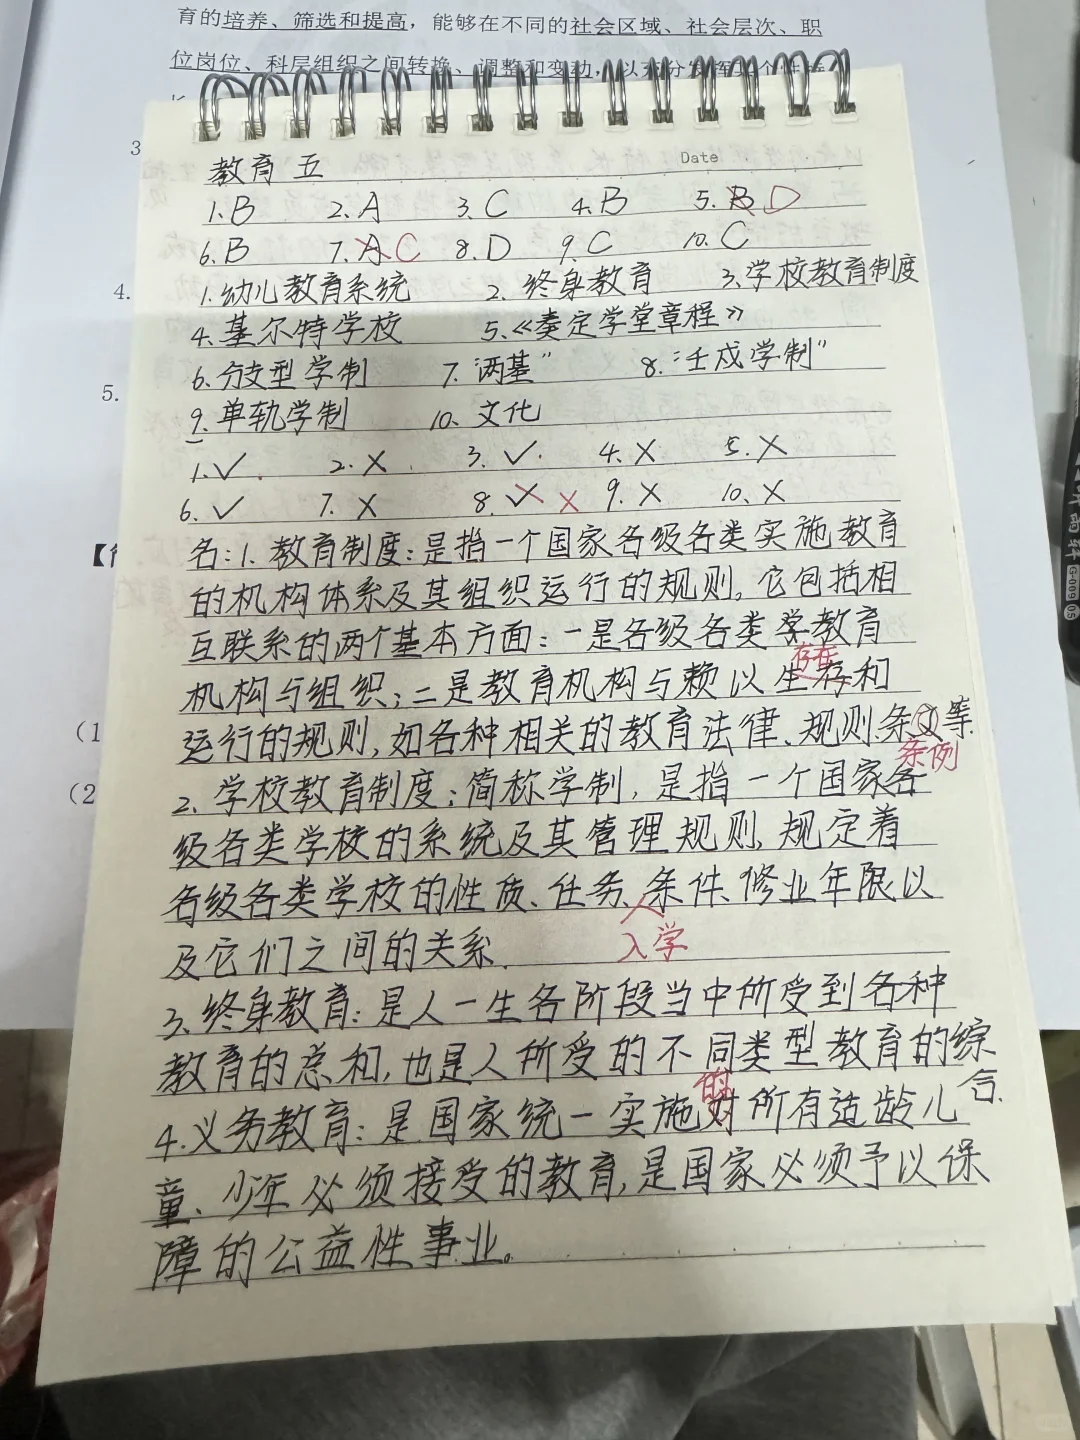 育的培养、筛选和提高，能够在不同的社会区域、社会层次、职
位岗位、科层组织之间转换、调整和变动，以充分发挥其个性特
3
Date
教育 五
1.B 2.A 3.C 4.B 5.B D
6.B 7.A C 8.D 9.C 10.C
4.
1.幼儿教育系统 2.终身教育 3.学校教育制度
4.基尔特学校 5.《奏定学堂章程》
5.
6.分支型学制 7."两基" 8."壬戌学制"
9.单轨学制 10.文化
1.✓ 2.× 3.✓. 4.× 5.×
6.✓ 7.× 8.✓ × 9.× 10.×
名:1.教育制度:是指一个国家各级各类实施教育
的机构体系及其组织运行的规则,它包括相
互联系的两个基本方面:一是各级各类学教育
存在
机构与组织;二是教育机构与赖以生存和
运行的规则,如各种相关的教育法律、规则条文等.
条例
2.学校教育制度:简称学制,是指一个国家各
(1
级各类学校的系统及其管理规则,规定着
(2
各级各类学校的性质、任务、条件、修业年限以
入学
及它们之间的关系.
3.终身教育:是人一生各阶段当中所受到各种
教育的总和,也是人所受的不同类型教育的综
合.
的
4.义务教育:是国家统一实施对所有适龄儿
童、少年必须接受的教育,是国家必须予以保
障的公益性事业。
G-009 05